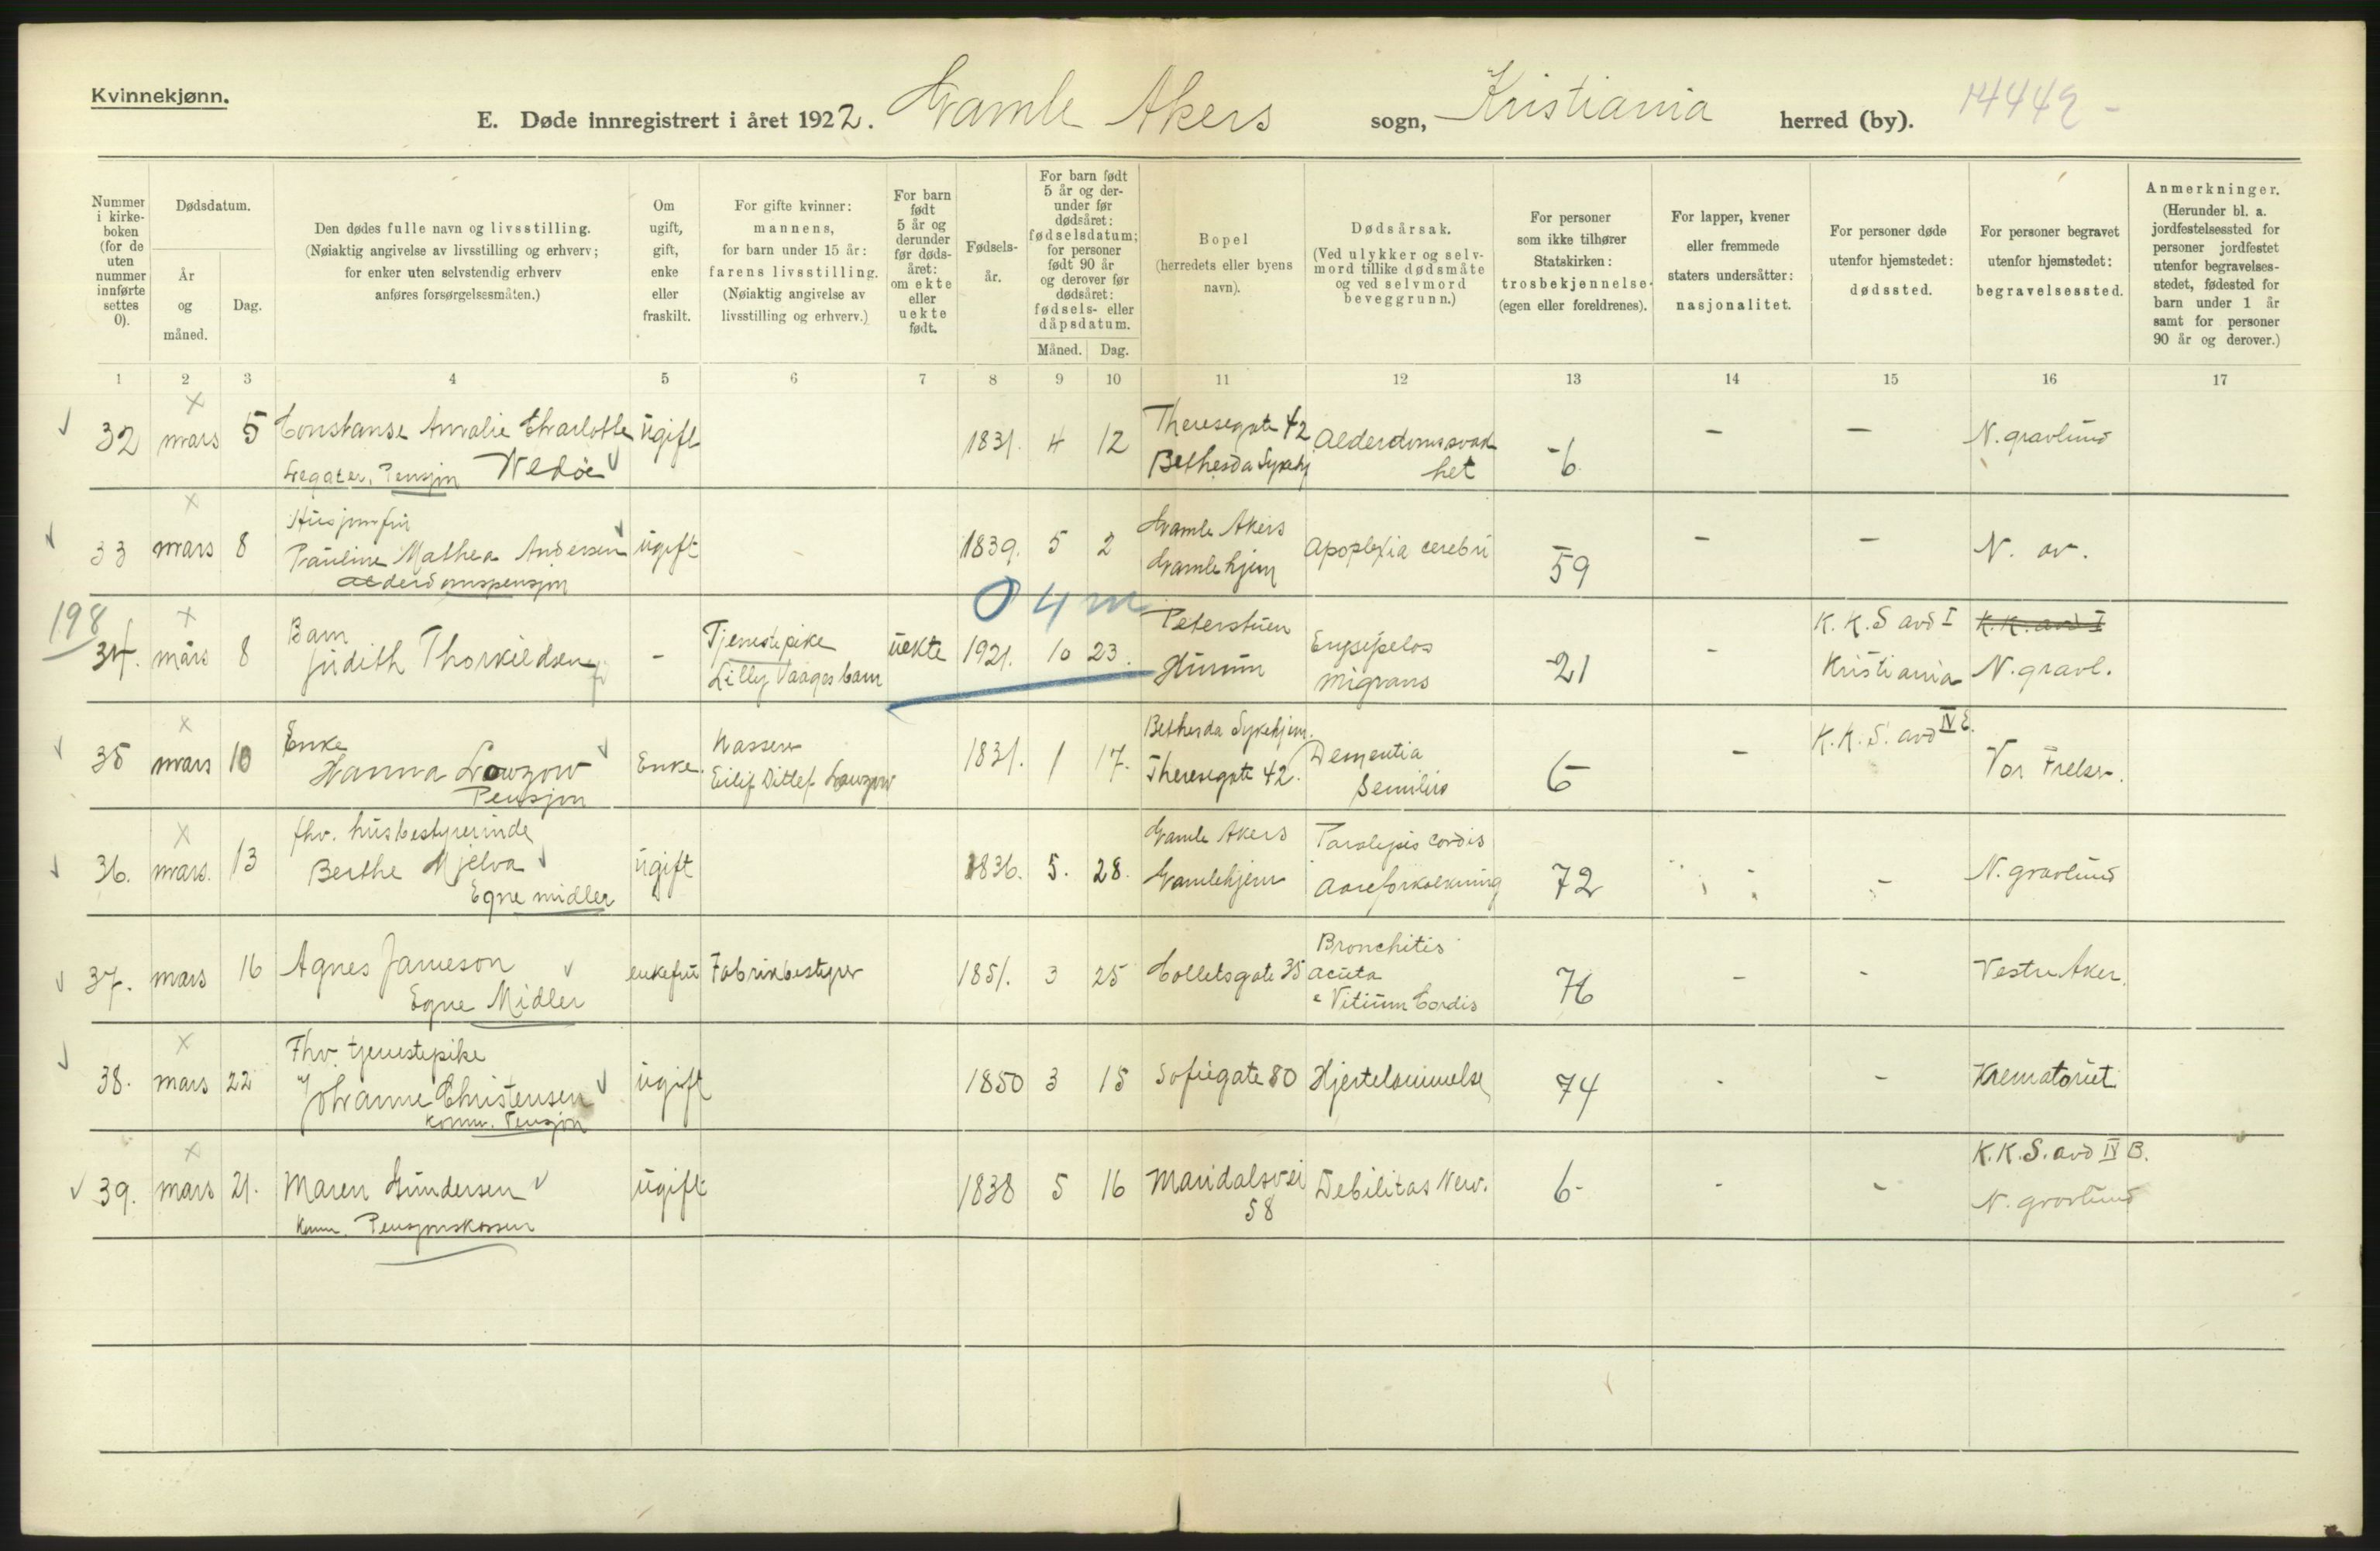 Kvinnekjønn.
E. Døde innregistrert i året 1922. Gamle Akers sogn, Kristiania herred (by). 14442 -
Nummer i kirke-boken (for de uten nummer innførte settes 0).
Dødsdatum.
År og måned.
Dag.
Den dødes fulle navn og livsstilling.
(Nøiaktig angivelse av livsstilling og erhverv;
for enker uten selvstendig erhverv
anføres forsørgelsesmåten.)
Om ugift, gift, enke eller fraskilt.
For gifte kvinner:
mannens,
for barn under 15 år:
farens livsstilling.
(Nøiaktig angivelse av
livsstilling og erhverv.)
For barn født 5 år og derunder før døds-året: om ekte eller uekte født.
Fødsels-år.
For barn født 5 år og der-under før dødsåret: fødselsdatum; for personer født 90 år og derover før dødsåret: fødsels- eller dåpsdatum.
Måned. Dag.
Bopel
(herredets eller byens
navn).
Dødsårsak.
(Ved ulykker og selv-
mord tillike dødsmåte
og ved selvmord
beveggrunn.)
For personer
som ikke tilhører
Statskirken:
trosbekjennelse
(egen eller foreldrenes).
For lapper, kvener
eller fremmede
staters undersåtter:
nasjonalitet.
For personer døde
utenfor hjemstedet:
dødssted.
For personer begravet
utenfor hjemstedet:
begravelsessted.
Anmerkninger.
(Herunder bl. a.
jordfestelsessted for
personer jordfestet
utenfor begravelses-
stedet, fødested for
barn under 1 år
samt for personer
90 år og derover.)
1 2 3 4 5 6 7 8 9 10 11 12 13 14 15 16 17
32 mars 5 Constanse Amalie Charlotte ugift 1831. 4 12 Theresegate 42 Alderdomssvak - - N. gravlund
Legater, Pensjon Wedøe Bethesda Sykehj het 6
Husjomfru
33 mars 8 Pauline Mathea Andersen ugift 1839. 5 2 Gamle Akers Apoplexia cerebri - - - N. av.
alderdomspensjon Gamlehjem 59
198 0 4 m
34. mars 8 Barn Tjenestepike uekte 1921. 10 23. Peterstuen Erysipelas - K. K. S avd I K. K. avd I
Judith Thorkildsen - Lilly Vaages barn Hurum migrans 21 Kristiania N. gravl.
35 mars 10 Enke Enke. Kasserer 1831. 1 17. Bethesda Sykehjem. Dementia - K. K. S. avd IV E.
Hanna Lowzow Eilif Ditlef Lowzow Theresegate 42. Senilis 6 Vor Frelser.
Pensjon
36. mars. 13 fhv. husbestyrerinde ugift 1836. 5. 28. Gamle Akers Paralysis cordis
Berthe Mjelva Gamlehjem Aareforkalkning 72 - - N. gravlund
Egne midler
37. mars 16 Agnes Jameson enkefru Fabrikbestyrer 1851. 3 25 Colletsgate 35 Bronchitis acuta 76 - - Vestre Aker.
Egne Midler Vitium Cordis
38. mars 22 Fhv. tjenestepike
Johanne Christensen ugift 1850 3 15 Sofiegate 80 Hjertelammelse 74 - - Krematoriet
komm. Pensjon
39. mars 21. Maren Gundersen ugift 1838 5 16 Maridalsvei Debilitas Nerv. 6 - - K. K. S. avd IV B.
Komm. Pensjonskassen 58 N. gravlund